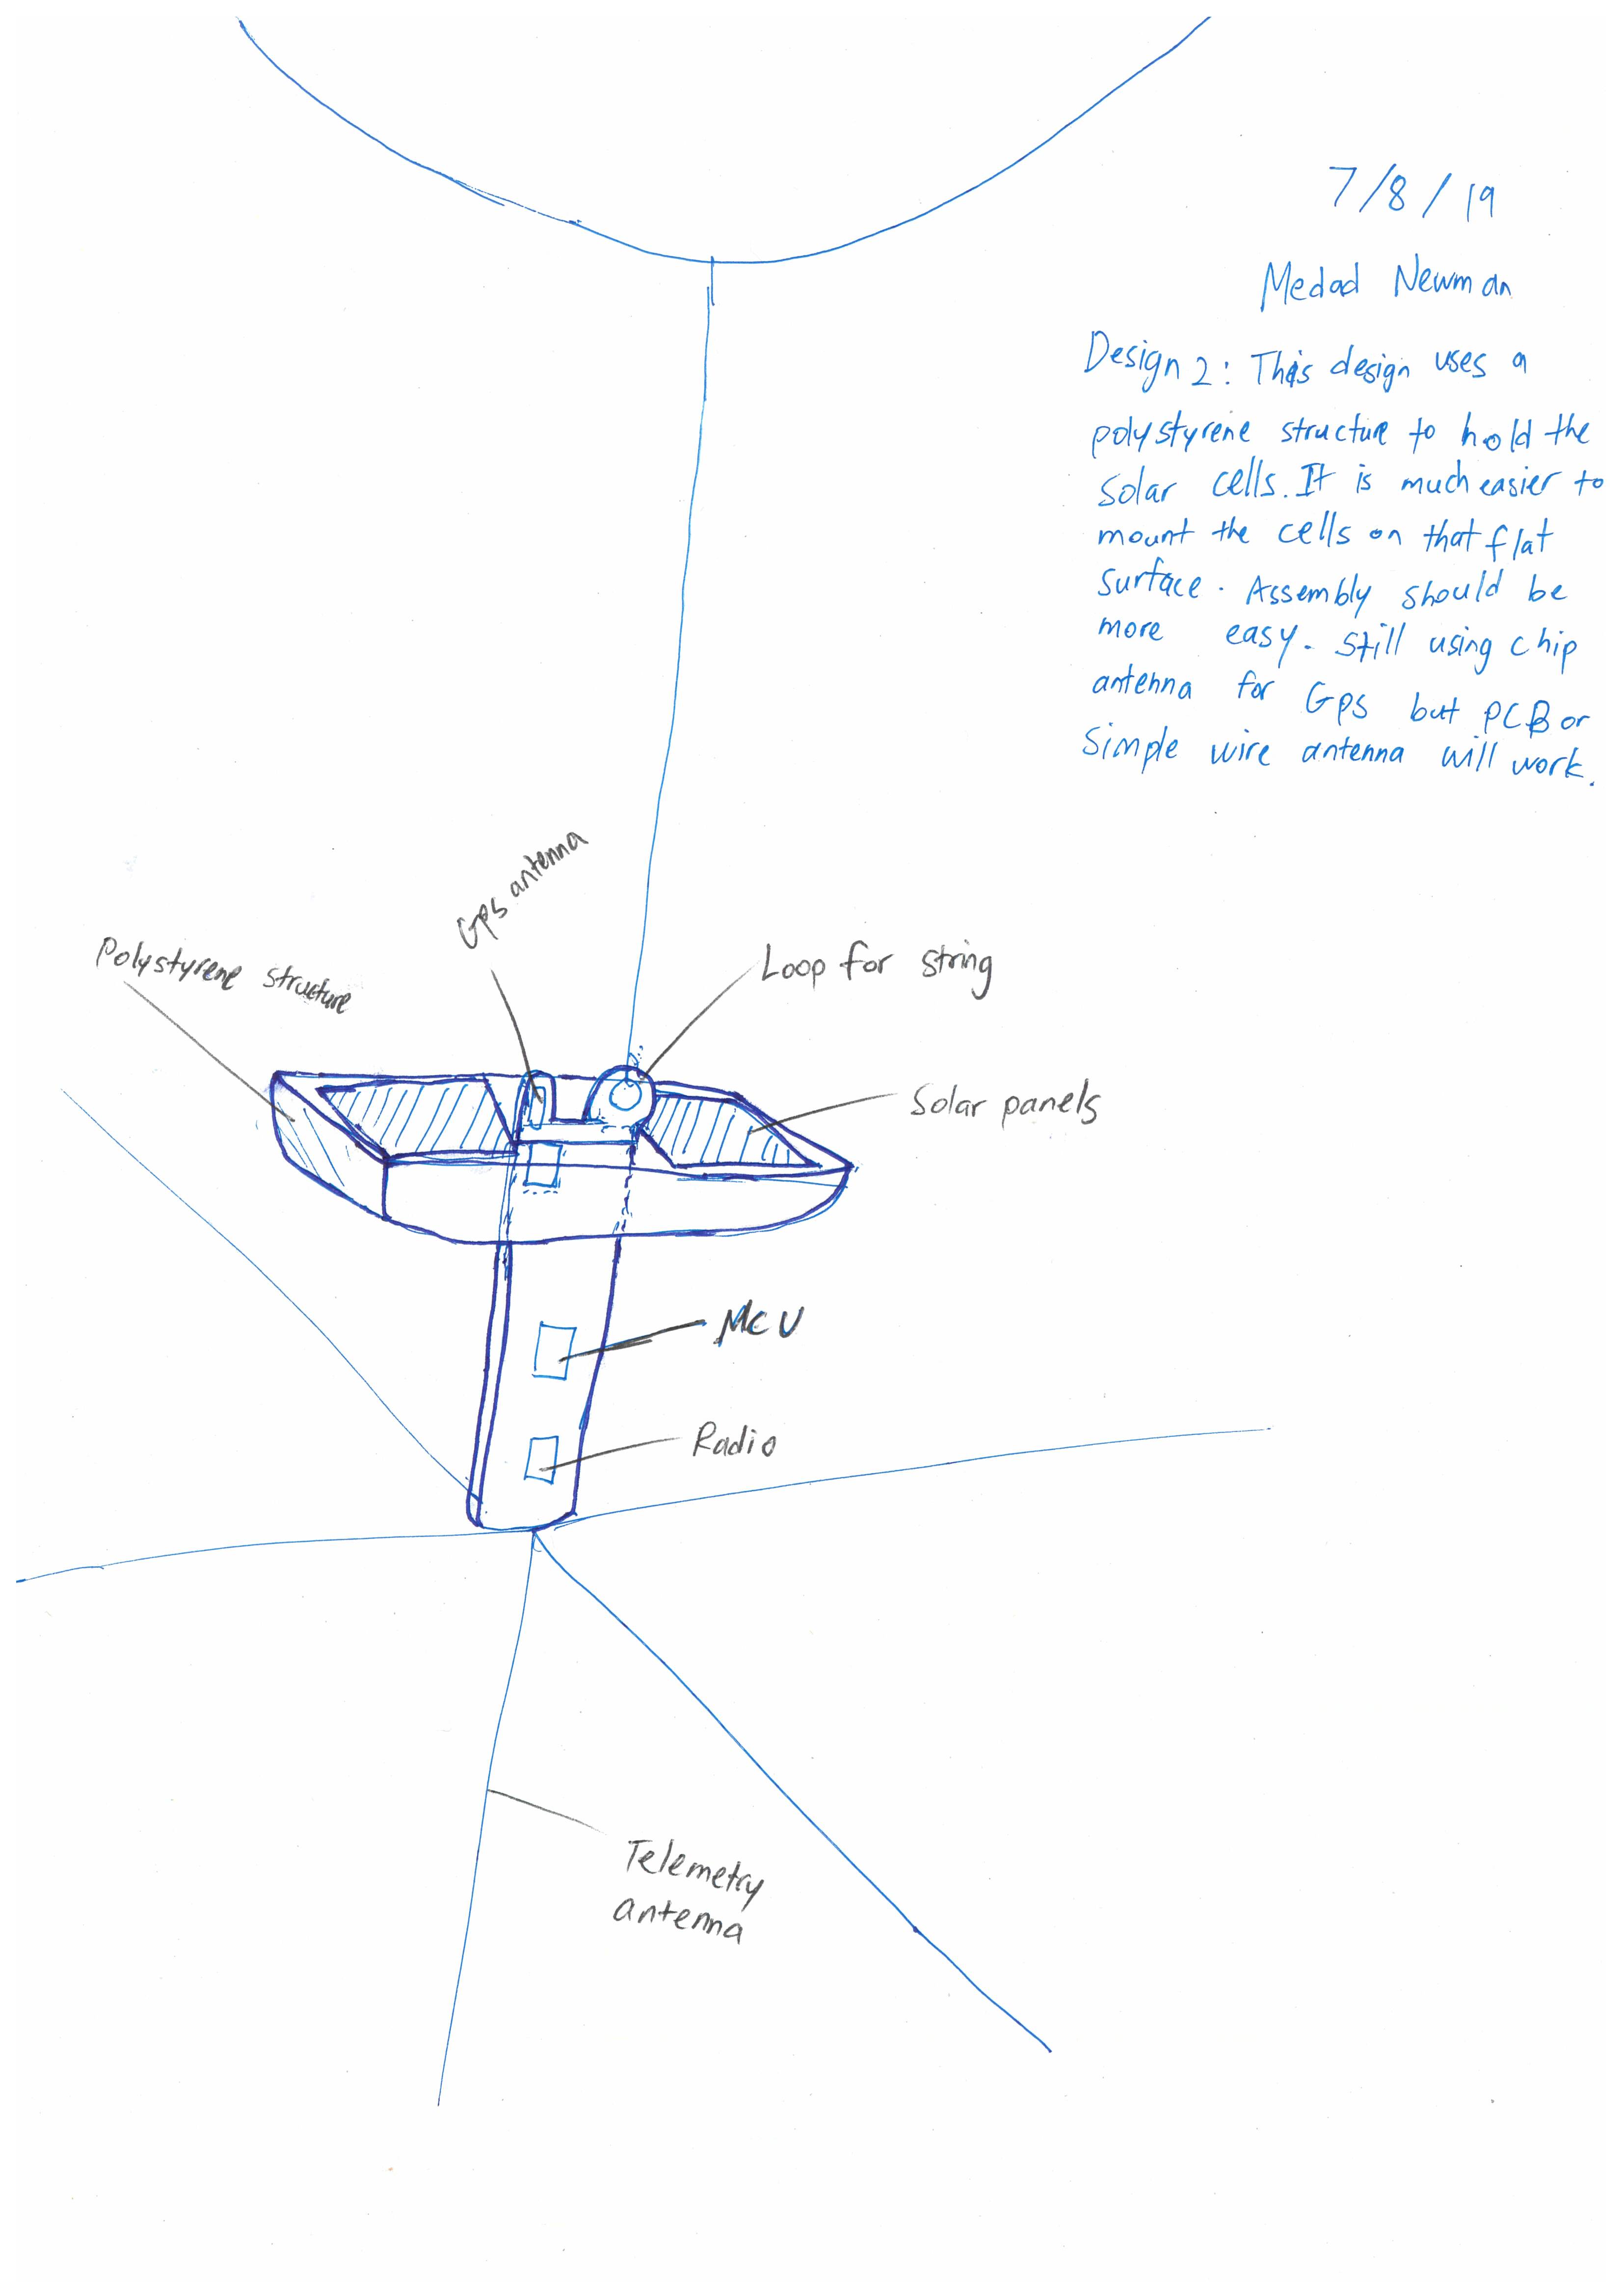 7/8/19
Medad Newman
Design 2: This design uses a
polystyrene structure to hold the
solar cells. It is much easier to
mount the cells on that flat
surface. Assembly should be
more easy. Still using chip
antenna for GPS but PCB or
simple wire antenna will work.
GPS antenna
Polystyrene structure
Loop for string
Solar panels
MCU
Radio
Telemetry
antenna